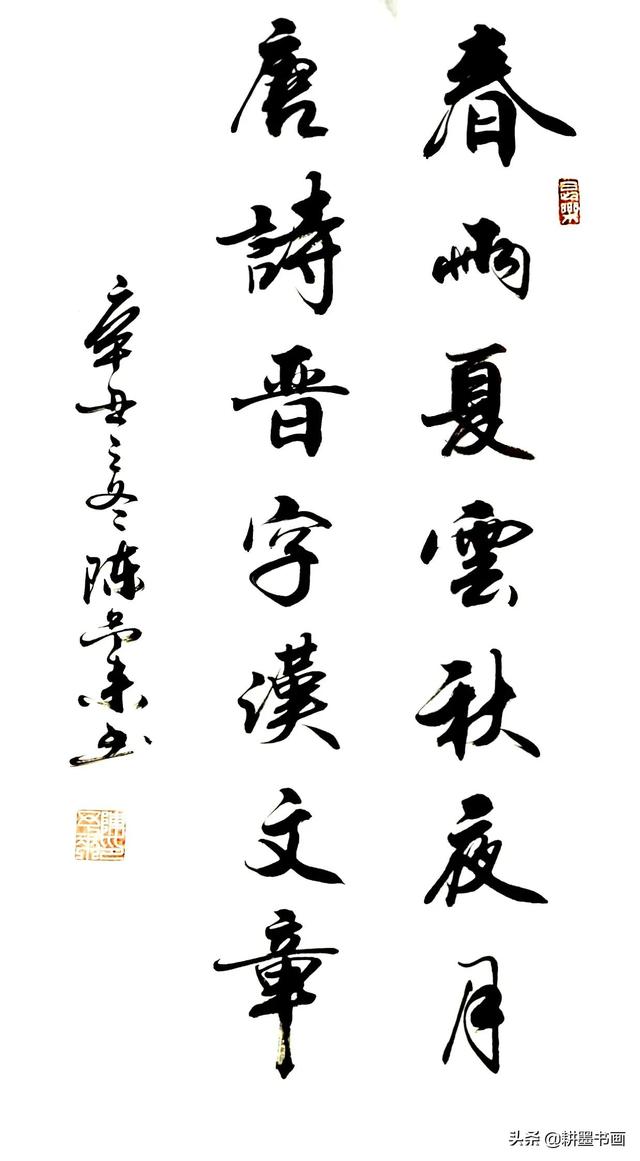 春雨夏雲秋夜月
唐詩晋字漢文章
辛丑之冬陈书
头条 @耕墨书画